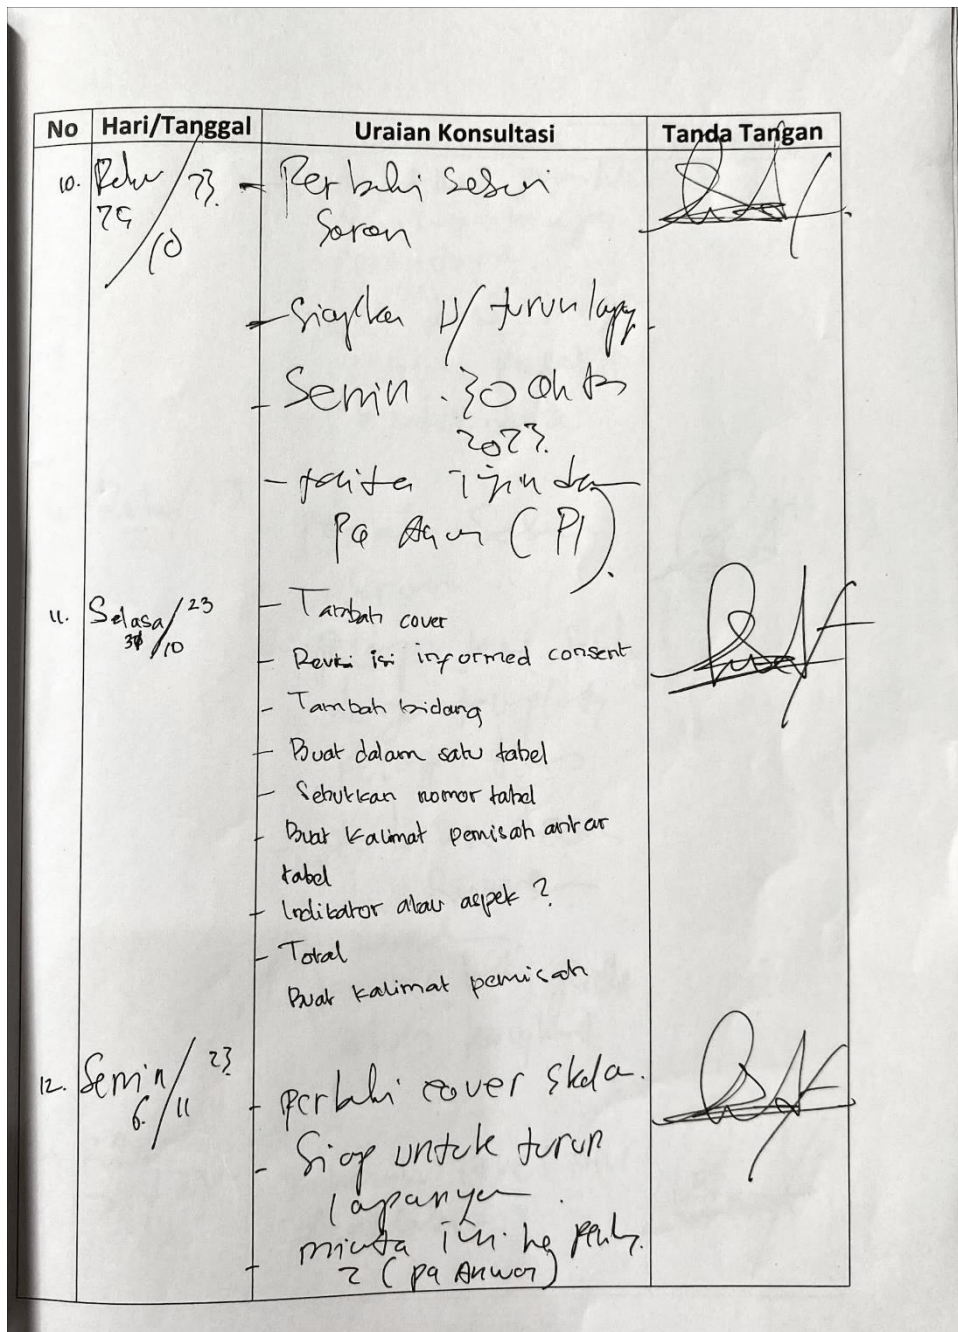 No Hari/Tanggal Uraian Konsultasi Tanda Tangan
10. Rabu / 23. - Perbaiki sesuai
25 /10 Saran
- Siapkan U/ turun lapg
- Senin . 30 Okt
2023.
- ijin
Pa (P1).
11. Selasa / 23 - Tambah cover
31 /10 - Revisi isi informed consent
- Tambah bidang
- Buat dalam satu tabel
- Sebutkan nomor tabel
- Buat kalimat pemisah antar
tabel
- Indikator atau aspek ?
- Total
Buat kalimat pemisah
12. Senin / 23
6. /11 - perbaiki cover skala.
- Siap untuk turun
lapangan .
- minta ijin ke
2 (pa Anwar)